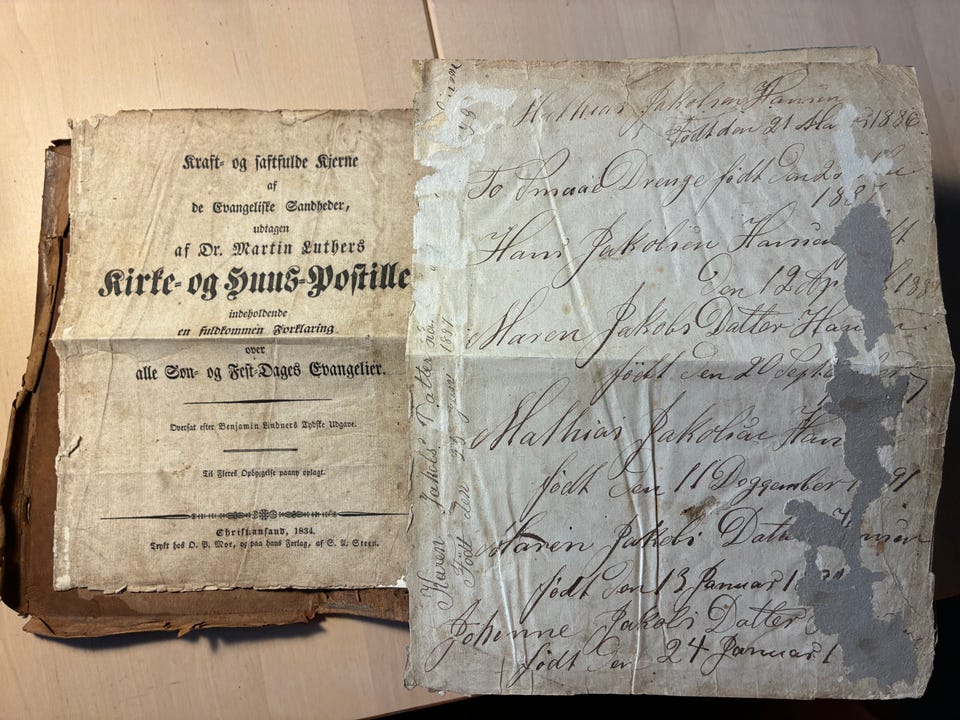 Kraft- og saftfulde Kjerne
af
de Evangeliske Sandheder,
udtagen
af Dr. Martin Luthers
Kirke- og Huus-Postille
indeholdende
en fuldkommen Forklaring
over
alle Søn- og Fest-Dages Evangelier.
Oversat efter Benjamin Lindners Tydske Udgave.
Til Fleres Opbyggelse paany oplagt.
Christiansand, 1834.
Trykt hos O. P. Moe, og paa hans Forlag, af S. A. Steen.
Mathias Jakobsen Hansen
Født den 21 1886
To Smaae Drenge født den
Hans Jakobsen
Den 12
Maren Jakobs Datter
født den 20
Mathias Jakobsen
født den 11 Doggember
Maren Jakobs
født den 13 Januar
Johanne Jakobs Datter
født den 24 Januar
Karen Jakobs Datter
Født den 29 Juni